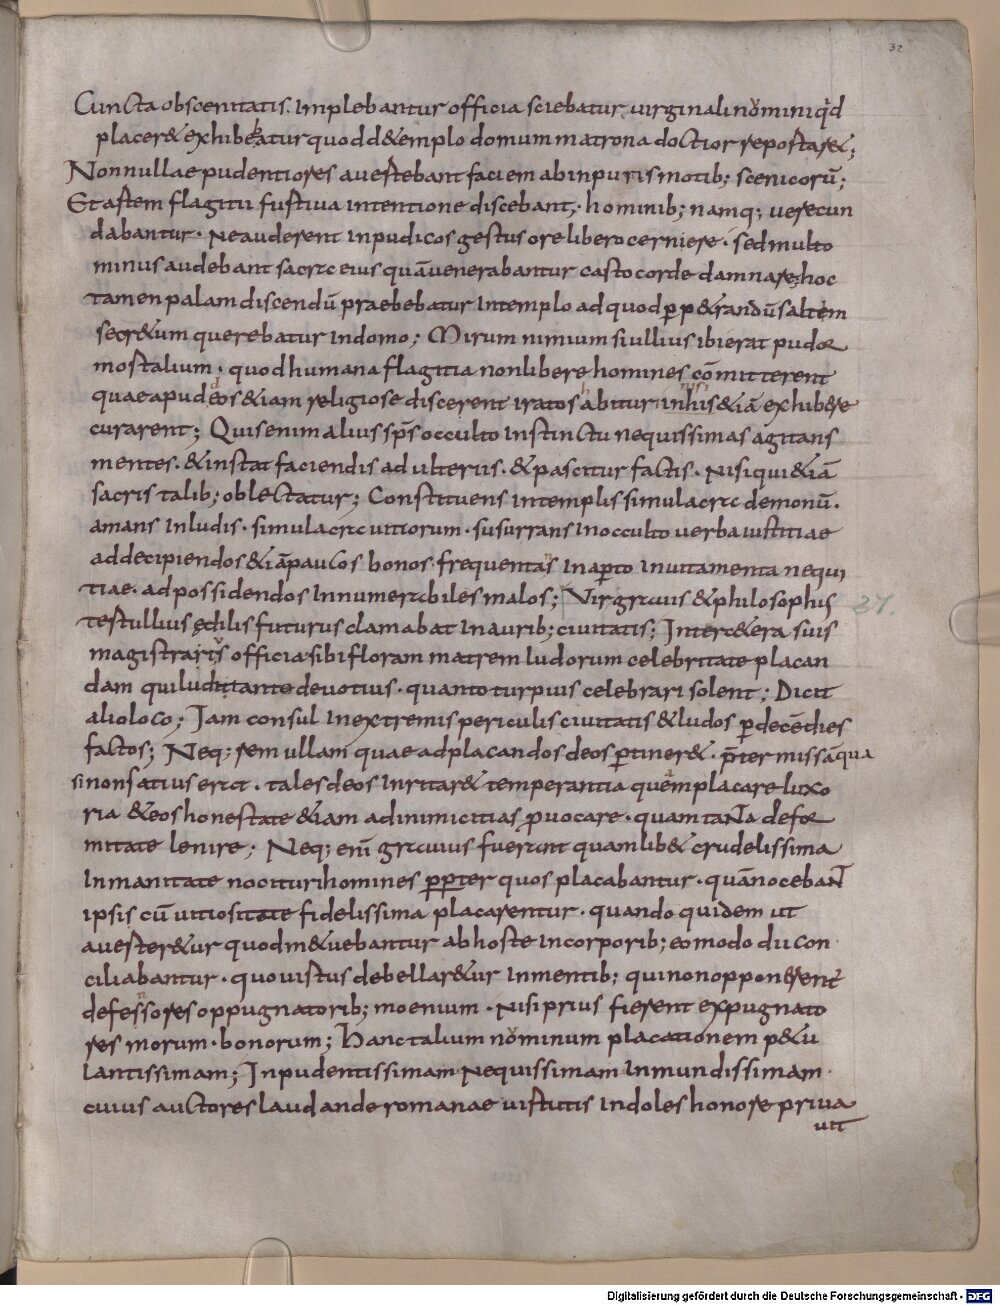 32
Cuncta obscenitatis. Implebantur officia sciebatur virginali nominiq'd
placer& exhibebatur quodd&emplo domum matrona doctior repostar&;
Nonnullae pudentiores avertebant faciem abinpuris motib; scenicorū;
Et artem flagitii furtiva intentione discebant; hominib; namq; verecun
dabantur · Neauderent inpudicos gestus ore libero cerniere · sed multo
minus audebant sacra eius quā venerabantur casto corde damnare; hoc
tamen palam discendū praebebatur Intemplo ad quod pp&randū saltem
secr&um querebatur Indomo; Mirum nimium si ullius ibi erat pudor
mortalium · quod humana flagitia non libere homines cōmitterent
quae apud eos &iam religiose discerent iratos abitur inhis &iā exhib&re
curarent; Quis enim alius sp̄s occulto Instinctu nequissimas agitans
mentes · &instat faciendis adulteriis · &pascitur factis · Nisi qui &iā
sacris talib; oblectatur; Constituens Intemplis simulacra demonū ·
amans Inludis · simulacra vitiorum · susurrans Inocculto verba iustitiae
addecipiendos &iā paucos bonos · frequentas Inaperto Invitamenta nequi
tiae · ad possidendos Innumerabiles malos; Vir gravis &philosophis 27.
testullius ędilis futurus clamabat Inaurib; civitatis; Inter c&era suis
magistraris officia sibi floram matrem ludorum celebritate placan
dam qui ludi tanto devotius · quanto turpius celebrari solent; Dicit
alio loco; Iam consul Inextremis periculis civitatis &ludos p decē dies
factos; Neq; rem ullam quae ad placandos deos ptiner& · p̄ter missā qua
si non satius erat · tales deos Inritar& temperantia quem placare luxo
ria &eos honestate &iam ad inimicitias pvocare · quam tanta defor
mitate lenire; Neq; enī gravius fuerant quamlib& crudelissima
Inmanitate nocituri homines ppter quos placabantur · quā nocebant
ipsis cū vitiositate fidelissima placarentur · quando quidem ut
averter&ur quod m&uebantur ab hoste Incorporib; eo modo dii con
ciliabantur · quo virtus debellar&ur Inmentib; qui non opponerent
defessores oppugnatorib; moenium · Nisi prius fierent expugnato
res morum · bonorum; Hanc talium nominum placationem p&u
lantissimam; Inpudentissimam Nequissimam Inmundissimam ·
cuius auctores laudande romanae virtutis Indoles honore priva
vit
Digitalisierung gefördert durch die Deutsche Forschungsgemeinschaft - DFG